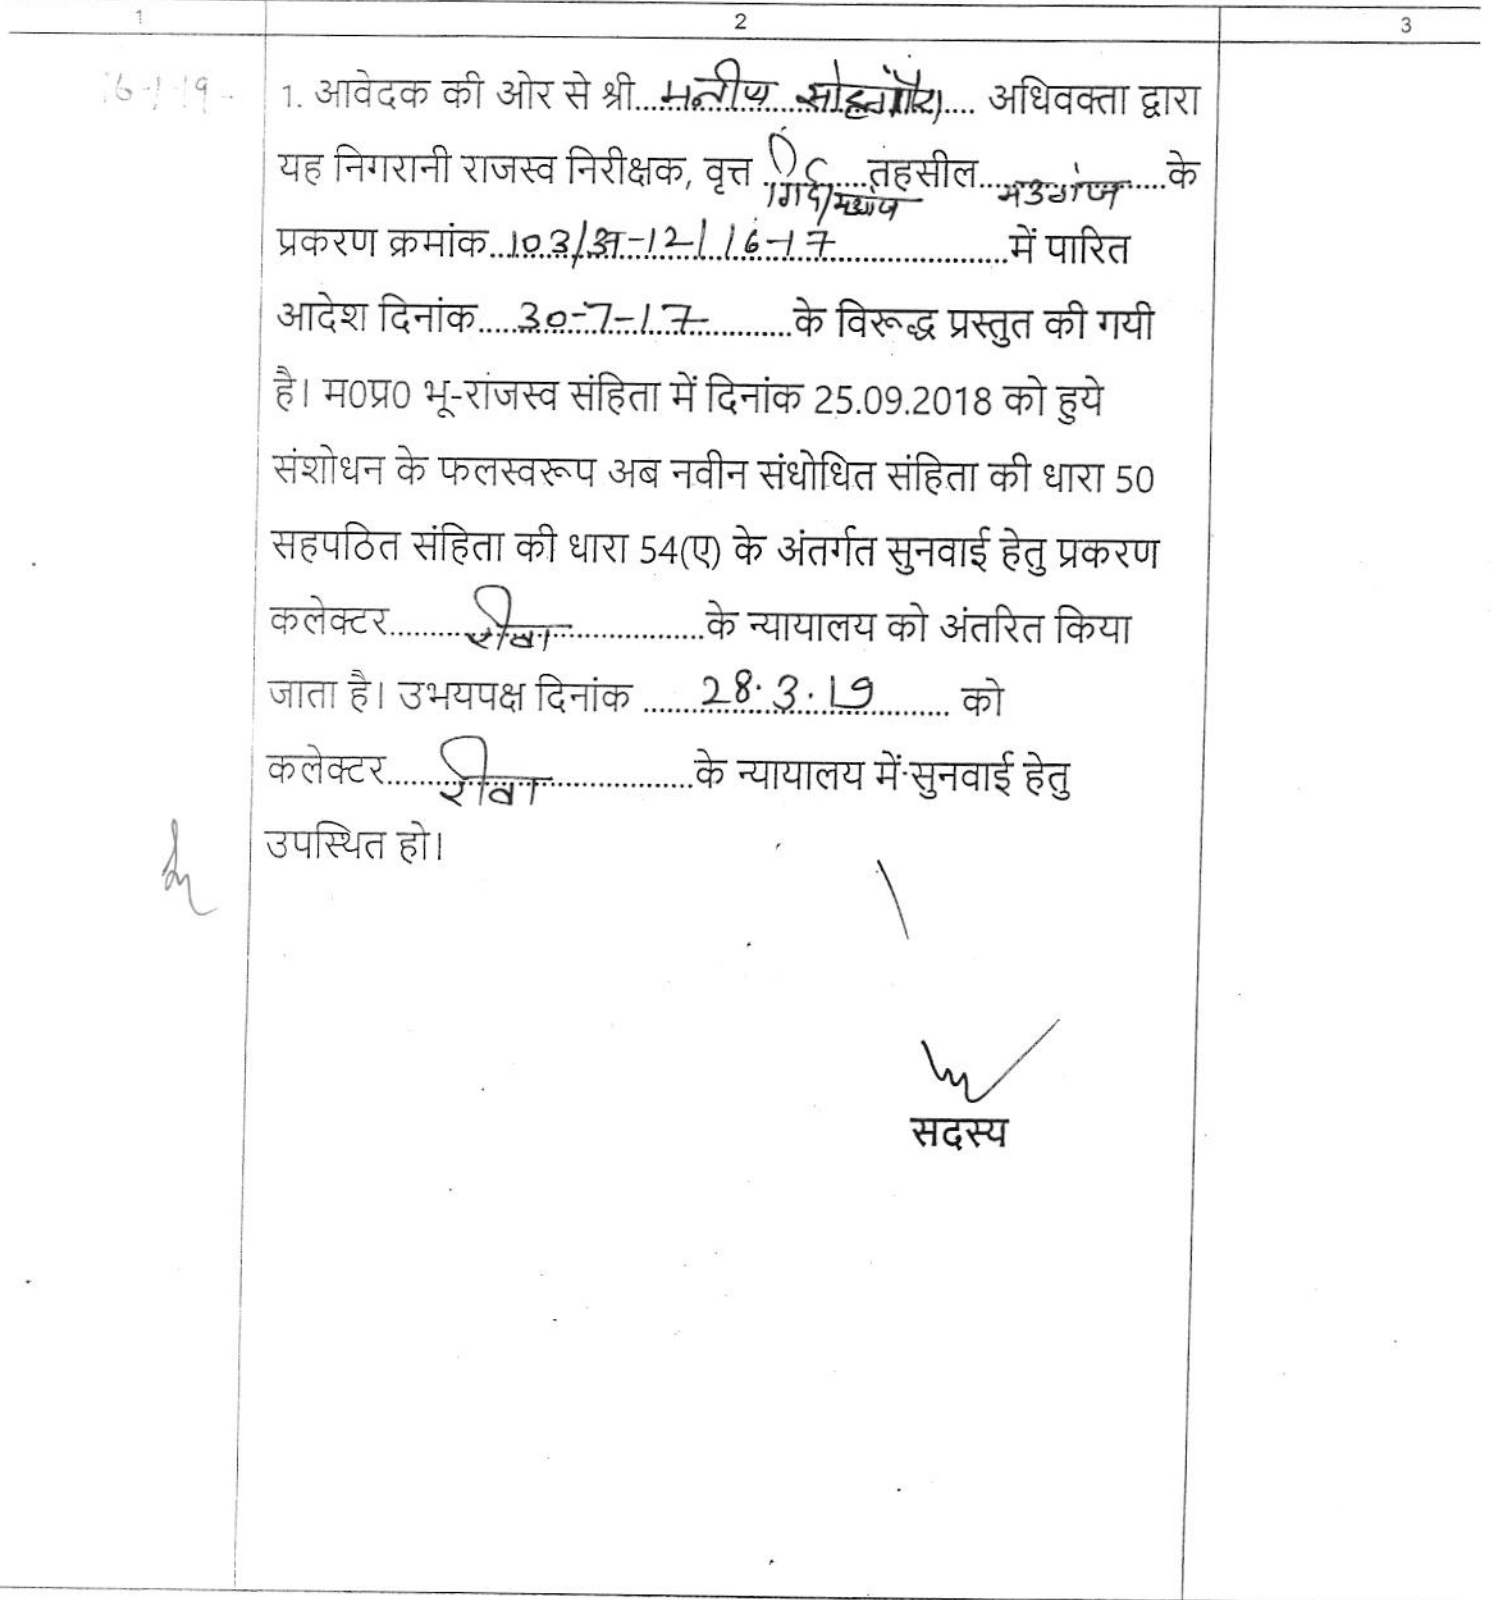 1 2 3
16-1-19-
1. आवेदक की ओर से श्री....मनीष सोहगौरा.... अधिवक्ता द्वारा
यह निगरानी राजस्व निरीक्षक, वृत्त गिर्द/मऊगंज तहसील....मउगंज....के
प्रकरण क्रमांक..103/अ-12/16-17....में पारित
आदेश दिनांक....30-7-17....के विरूद्ध प्रस्तुत की गयी
है। म0प्र0 भू-राजस्व संहिता में दिनांक 25.09.2018 को हुये
संशोधन के फलस्वरूप अब नवीन संधोधित संहिता की धारा 50
सहपठित संहिता की धारा 54(ए) के अंतर्गत सुनवाई हेतु प्रकरण
कलेक्टर....रीवा....के न्यायालय को अंतरित किया
जाता है। उभयपक्ष दिनांक ....28.3.19.... को
कलेक्टर....रीवा....के न्यायालय में सुनवाई हेतु
उपस्थित हो।
सदस्य